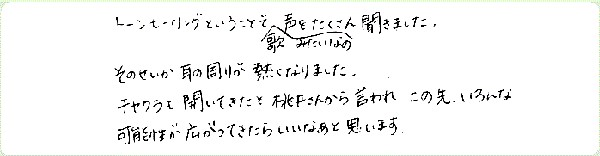 トーンヒーリングということで、声をたくさん聞きました。
歌みたいなの
そのせいか耳の周りが熱くなりました。
チャクラも開いてきたと桃Fさんから言われ この先、いろんな
可能性が広がってきたらいいなあと思います